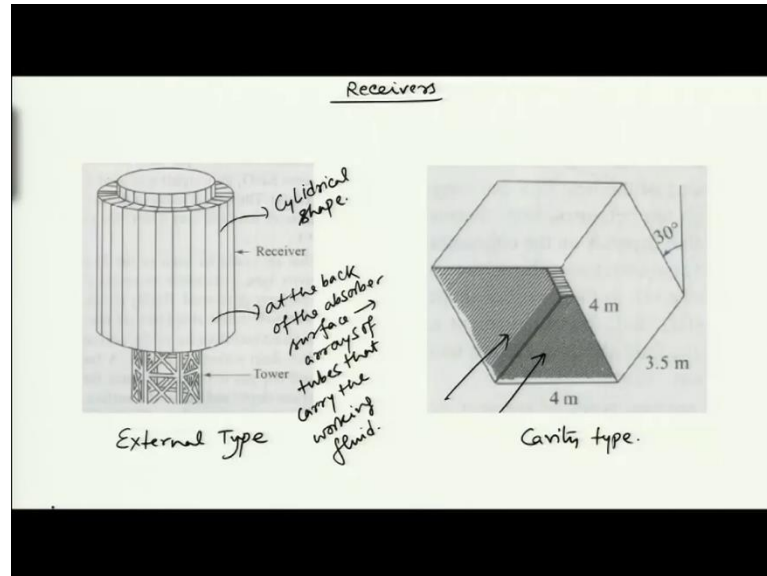 Receivers
Cylidrical
shape.
Receiver
at the back
of the absorber
surface →
arrays of
tubes that
carry the
working
fluid.
Tower
External Type
30°
4 m
3.5 m
4 m
Cavity type.